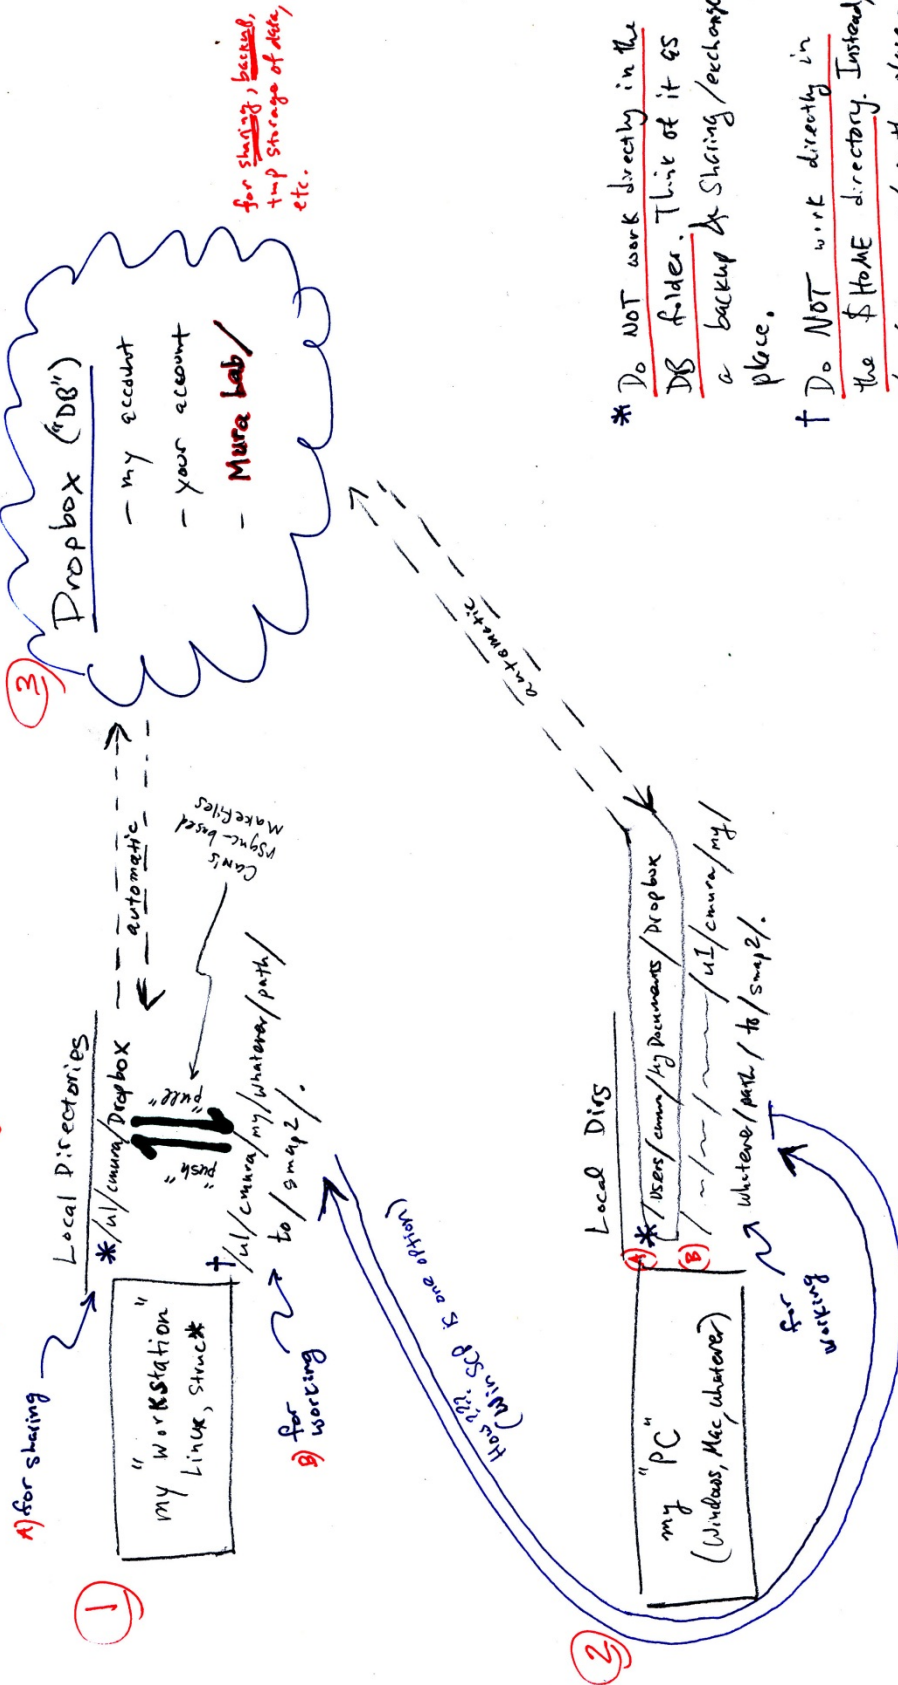 1
A) for sharing
my "workstation"
Linux, Struc*
Local Directories
* /u1/cmura/Dropbox
"push"
"pull"
† /u1/cmura/my/whatever/path/
to/smap2/.
B) for
working
Cam's
rsync-based
Makefiles
automatic
3
Dropbox ("DB")
- my account
- your account
- Mura Lab/
for sharing, backup,
tmp storage of data,
etc.
How??
(WinSCP is one option)
2
my "PC"
(Windows, Mac, whatever)
Local Dirs
(A) * /Users/cmura/My Documents/Dropbox
(B) /~/~/~/u1/cmura/my/
whatever/path/to/smap2/.
for
working
automatic
* Do NOT work directly in the
DB folder. Think of it as
a backup & sharing/exchange
place.
† Do NOT work directly in
the $HOME directory. Instead,